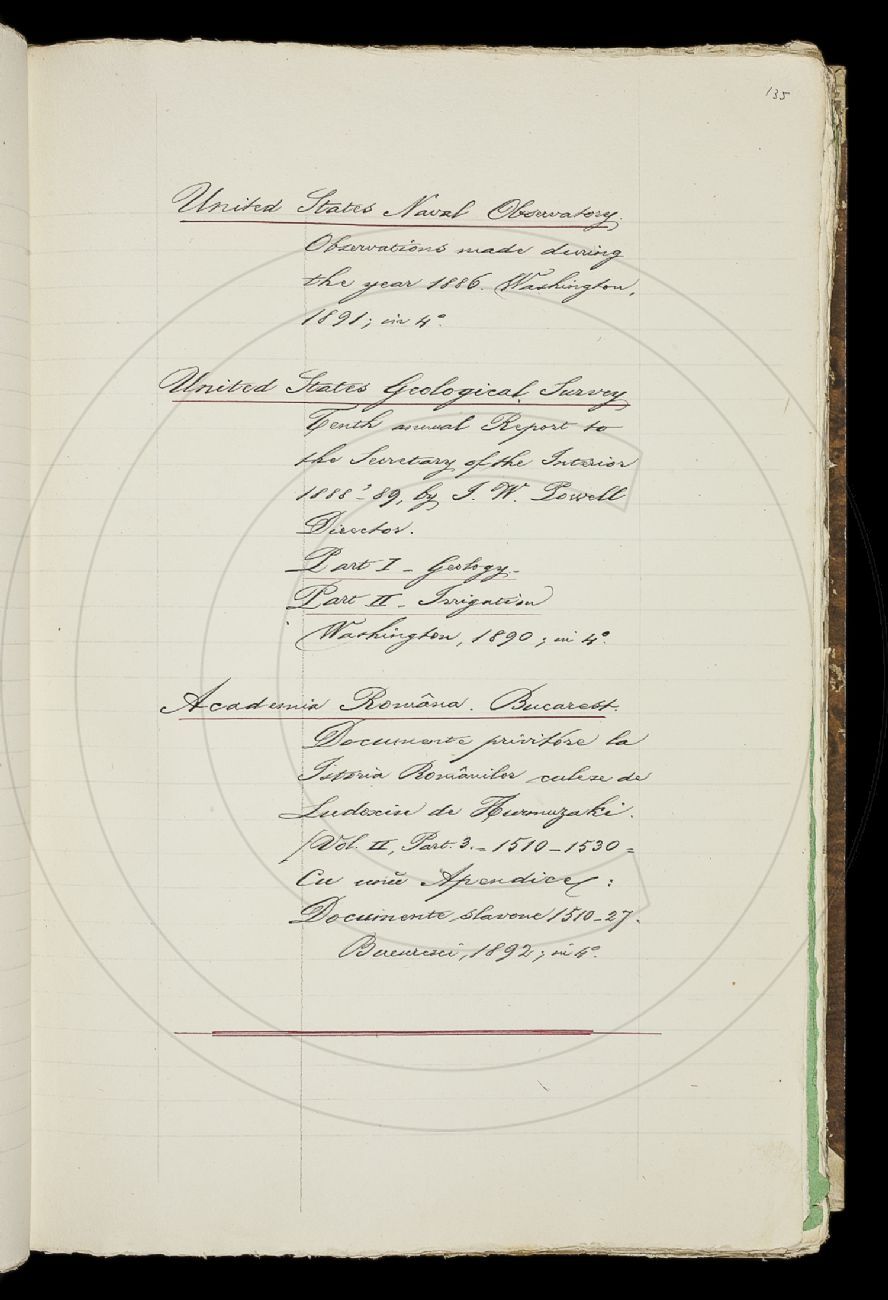 135
United States Naval Observatory.
Observations made during
the year 1886. Washington,
1891; in 4°.
United States Geological Survey
Tenth annual Report to
the Secretary of the Interior
1888'-89, by J. W. Powell
Director.
Part I - Geology -
Part II - Irrigation
Washington, 1890; in 4°.
Academia Româna. Bucarest.
Documente privitóre la
Istoria Românilor culese de
Eudoxiu de Hurmuzaki.
/Vol. II, Part. 3. - 1510-1530 =
Cu unŭ Apendice :
Documente slavone 1510-27.
Bucuresci, 1892; in 4°.